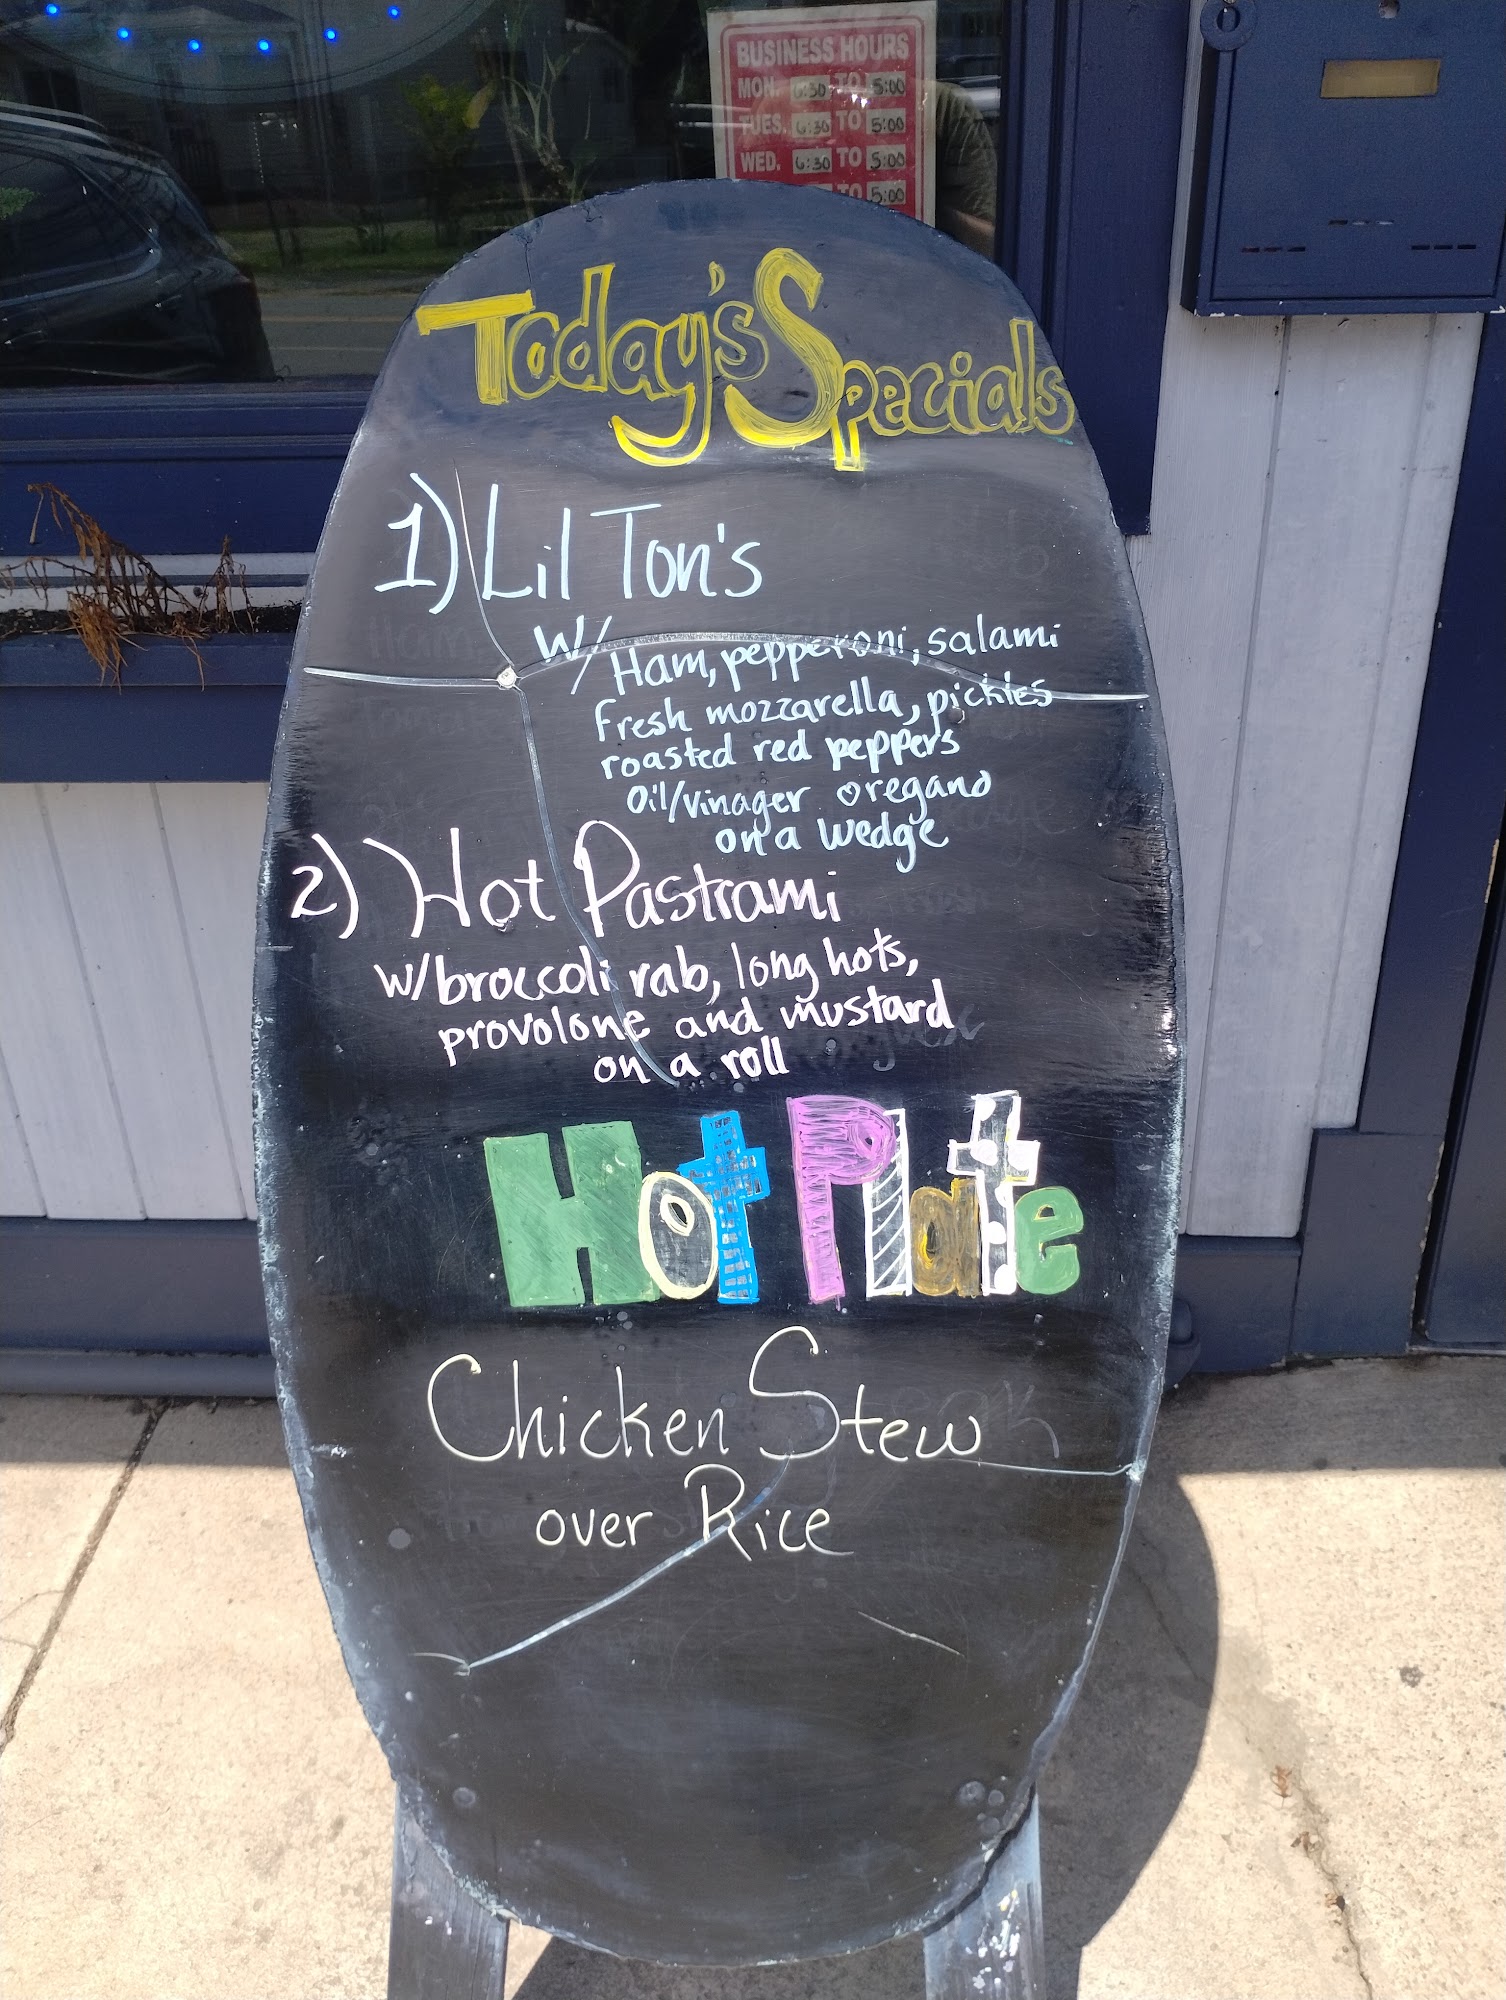 BUSINESS HOURS
MON. 6:30 TO 5:00
TUES. 6:30 TO 5:00
WED. 6:30 TO 5:00
TO 5:00
Today's Specials
1) Lil Ton's
w/ Ham, pepperoni, salami
fresh mozzarella, pickles
roasted red peppers
oil/vinager oregano
on a wedge
2) Hot Pastrami
w/broccoli rab, long hots,
provolone and mustard
on a roll
Hot Plate
Chicken Stew
over Rice